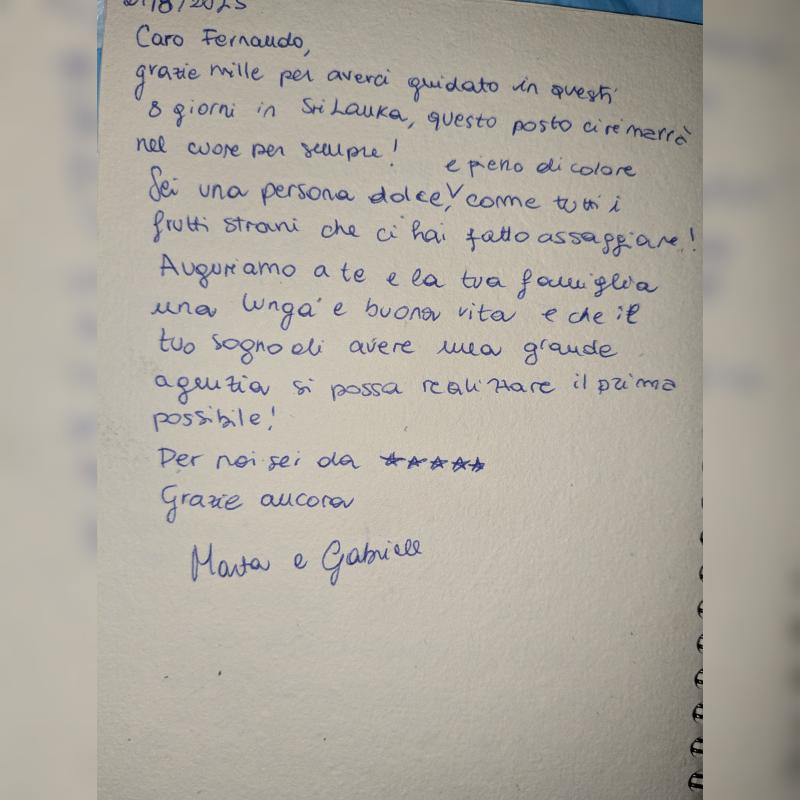 /8/2025
Caro Fernando,
grazie mille per averci guidato in questi
8 giorni in Sri Lanka, questo posto ci rimarrà
nel cuore per sempre!
e pieno di colore
Sei una persona dolce, come tutti i
frutti strani che ci hai fatto assaggiare!
Auguriamo a te e la tua famiglia
una lunga e buona vita e che il
tuo sogno di avere una grande
agenzia si possa realizzare il prima
possibile!
Per noi sei da ★★★★★
Grazie ancora
Marta e Gabriele